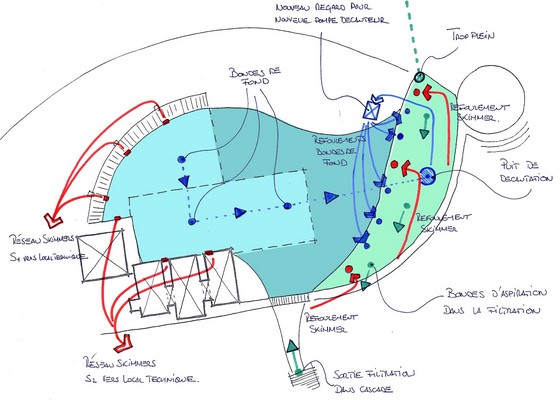 NOUVEAU REGARD POUR
NOUVELLE POMPE DECANTEUR
TROP PLEIN
BONDES DE
FOND
REFOULEMENT
SKIMMER.
REFOULEMENTS
BONDES DE
FOND
PUIT DE
DECANTATION
REFOULEMENT
SKIMMER
RÉSEAU SKIMMERS
S1 VERS LOCAL TECHNIQUE.
BONDES D'ASPIRATION
DANS LA FILTRATION
REFOULEMENT
SKIMMER
RÉSEAU SKIMMERS
S2 VERS LOCAL TECHNIQUE.
SORTIE FILTRATION
DANS CASCADE